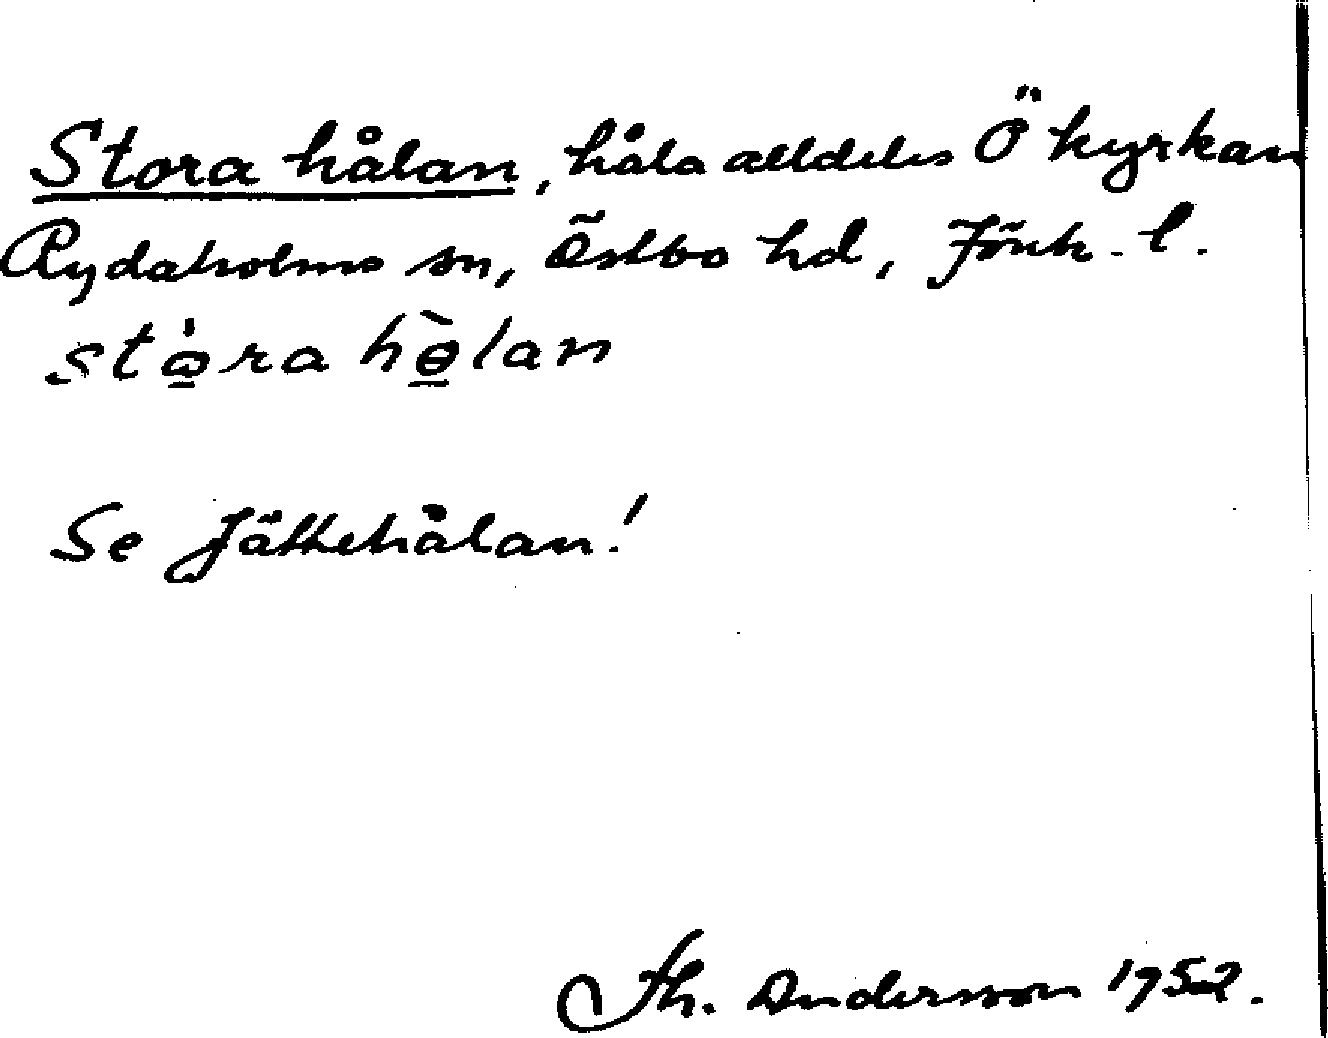 Stora hålan, håla alldeles Ö kyrkan
Rydaholms sn, Östbo hd, Jönk. l.
stò̱ra hɵ̱̀lan
Se Jättehålan!
Th. Andersson 1952.